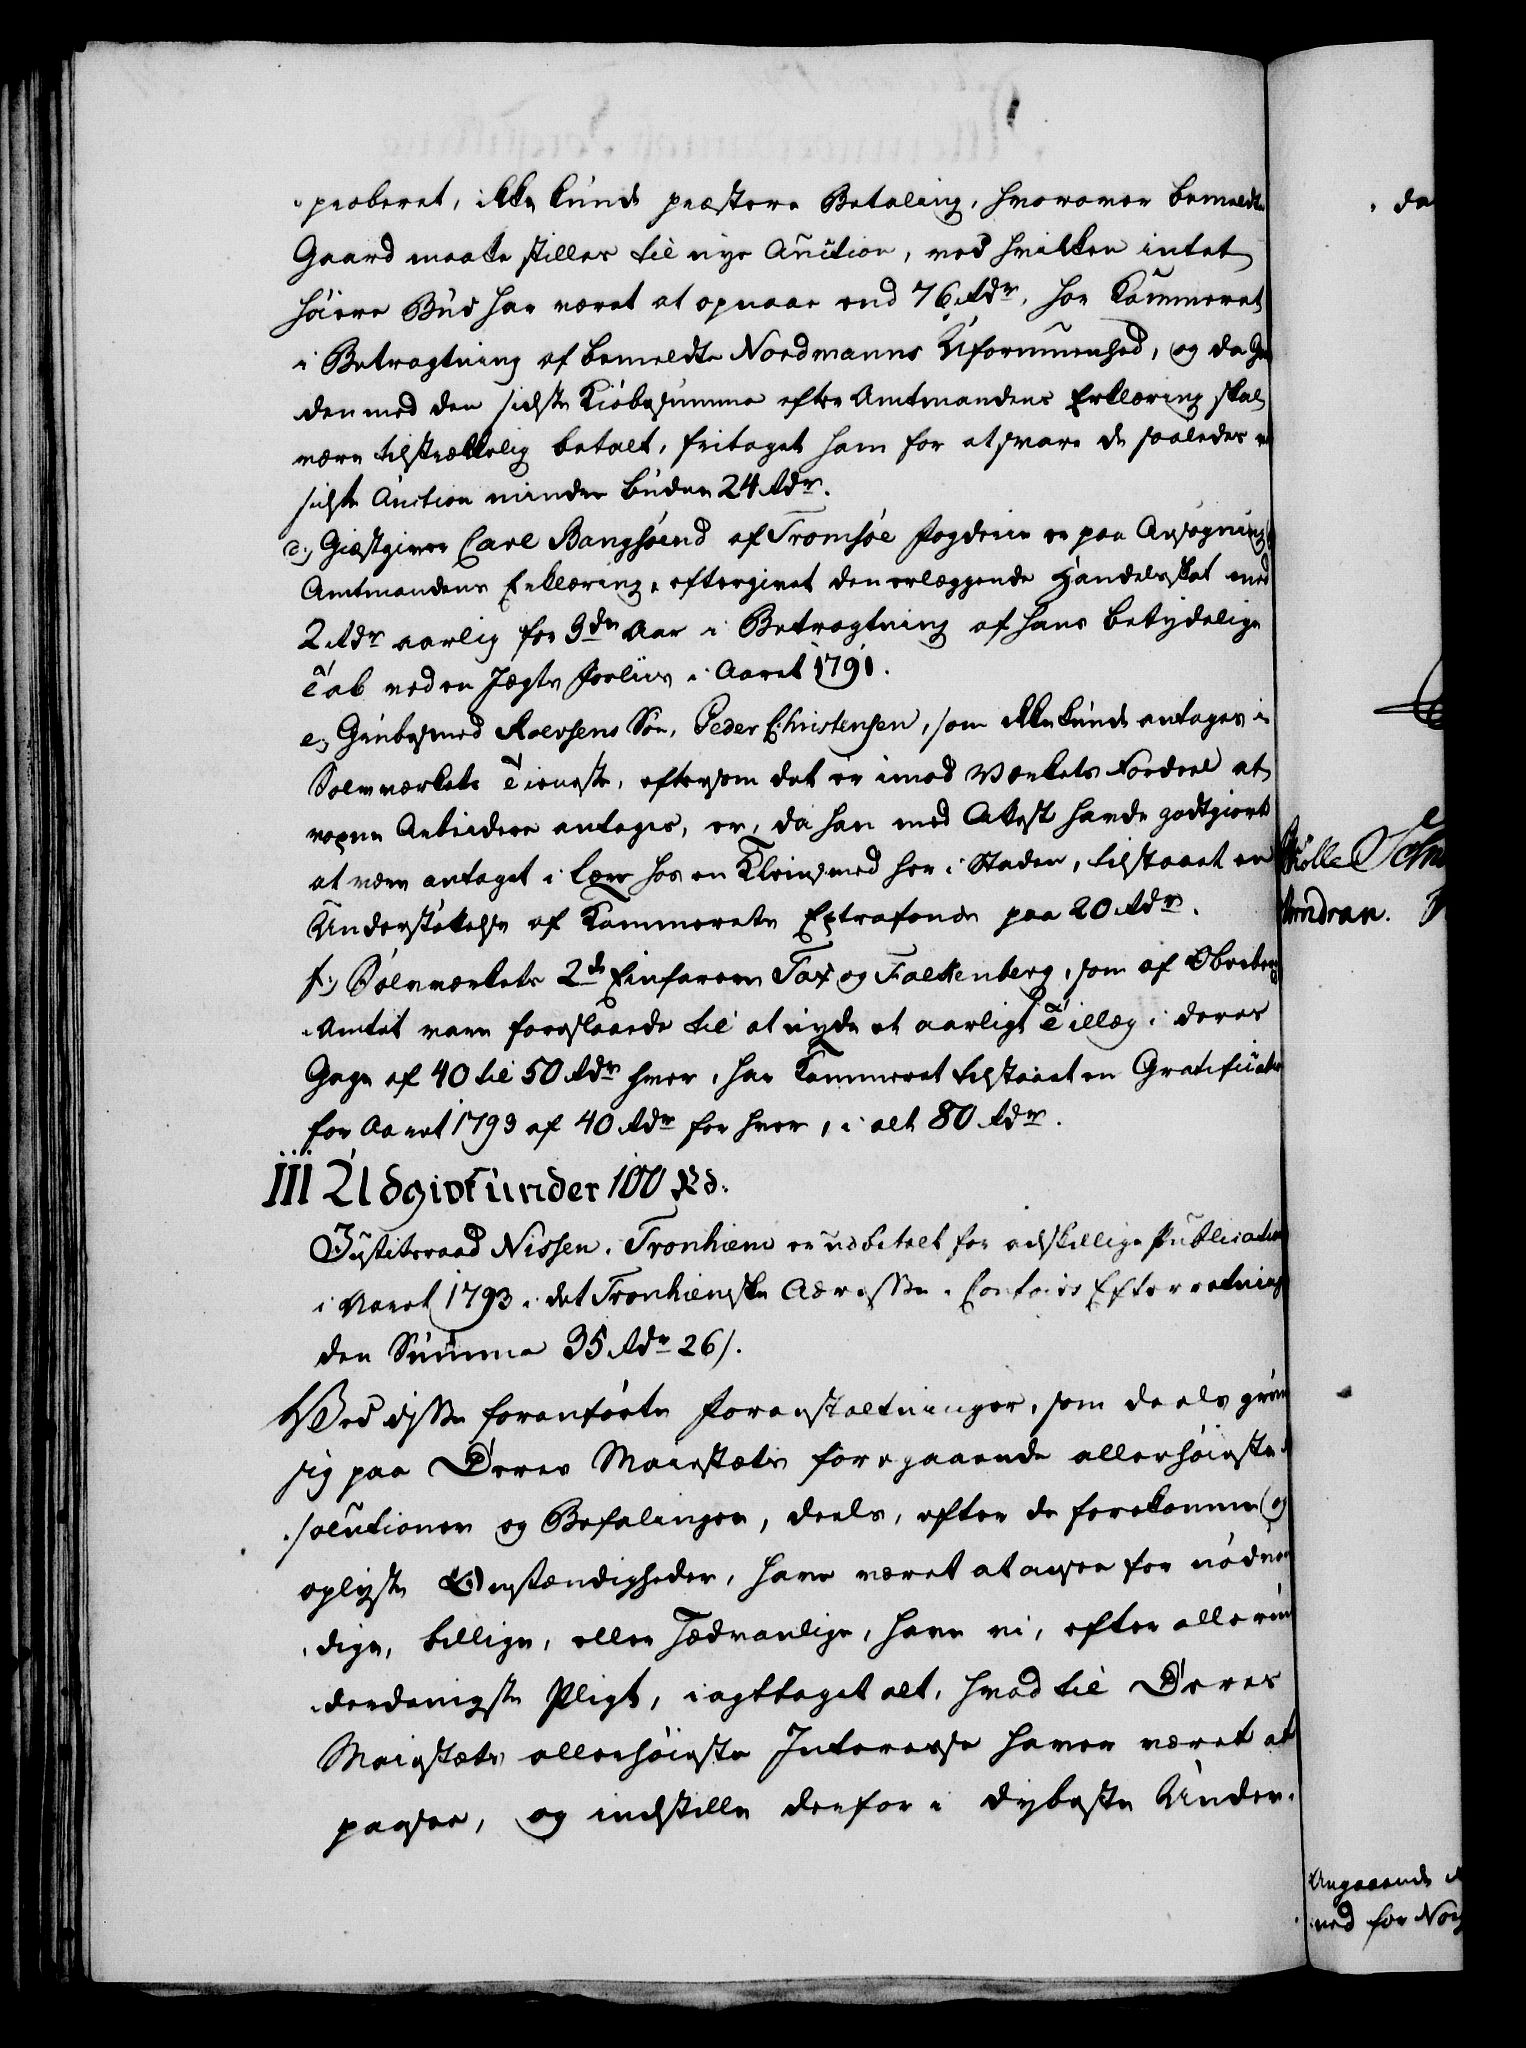 proberet, ikke kunde præstere Betaling, hvorover bemeldte
Gaard maatte stilles til nye Auction, ved hvilken intet
höiere Bud har været at opnaae end 76 Rdr, har Kammeret
i Betragtning af bemeldte Nordmanns Uformuenhed, og da
den med den sidste Kiöbesumma efter Amtmandens Erklæring skal
være tilstrækkelig betalt, fritaget ham for at svare de saaledes
sidste Auction mindre budne 24 Rdr.
Giæstgiver Carl Bangsöund af Tromsöe Fogderie er paa Ansögning
Amtmandens Erklæring, eftergivet den erlæggende Handelsskat med
2 Rdr aarlig for 3de Aar i Betragtning af hans betydelige
Tab ved en Jægts Forliis i Aaret 1791.
e, Grubesmed Roersens Sön, Peder Christensen, som ikke kunde antages i
Sölvværkets Tieneste, eftersom det er imod Værkets Fordeel at
voxne Arbeidere antages, er, da han med Attest havde godtgiort
at være antaget i Lære hos en Kleinsmed her i Staden, tilstaaet en
Understöttelse af Kammerets Extrafonds paa 20 Rdr.
f, Sölvværkets 2de Einfarere Fax og Falkenberg, som af Oberberg
Amtet vare foreslaaede til at nyde et aarligt Tillæg i deres
Gage af 40 til 50 Rdr hver, har Kammeret tilstaaet en Gratification
for Aaret 1793 af 40 Rdr for hver, i alt 80 Rdr.
III Udgivt under 100 Rd.
Justitsraad Nissen i Tronhiem er udbetalt for adskillige Publication
i Aaret 1793 i det Tronhiemske Adresse-Contoirs Efterretning
den Summa 35 Rdr 26 s.
Ved disse foranförte Foranstaltninger, som deels
sig paa Deres Maiestæts foregaaende allerhöieste
solutioner og Befalinger, deels, efter de forekomne og
oplyste Omstændigheder, have været at ansee for nödven
dige, billige, eller sædvanlige, have vi, efter allerun
derdanigste Pligt, iagttaget alt, hvad til Deres
Maiestæts allerhöieste Interesse haver været at
paasee, og indstille derfor i dybeste Under-
da
Angaaende
ved for